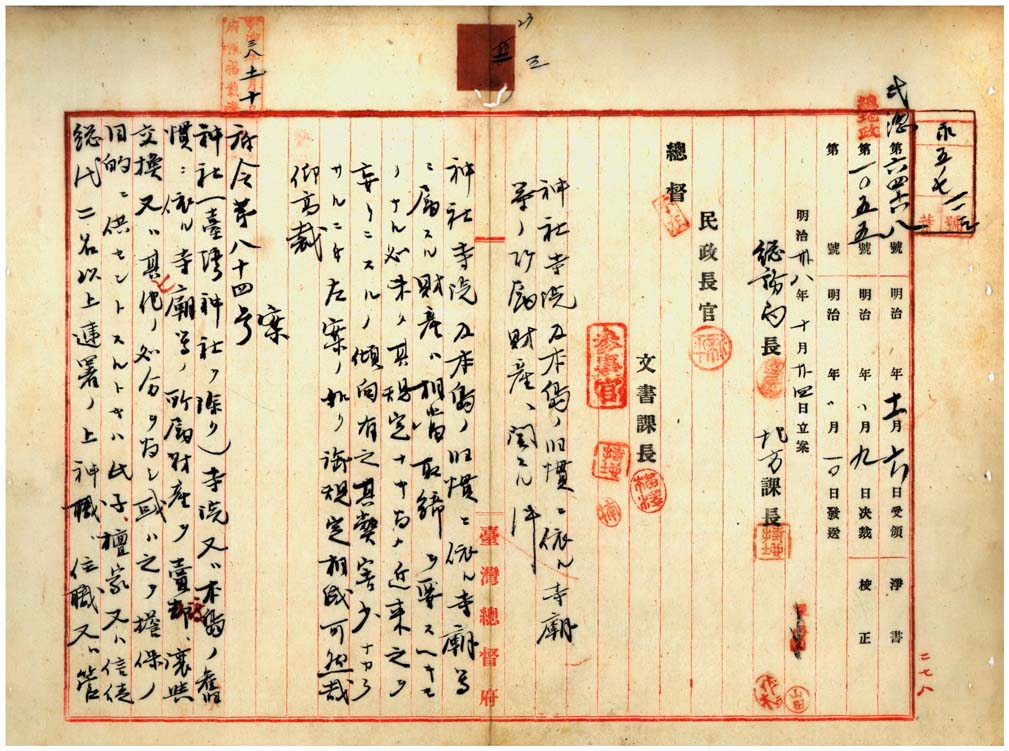 永五七一一
號
民總第六四六八號 明治 年十一月六日受領 淨書
總政
第一〇五五號 明治 年〃月九日決裁 校正
第 號 明治 年〃月一〇日發送
明治卅八年十月廿四日立案
總務局長 地方課長
總督 民政長官 文書課長
參事官
神社寺院及本島ノ旧慣ニ依ル寺廟
等ノ所屬財産ニ關スル件
神社寺院及本島ノ旧慣ニ依ル寺廟等
ニ屬スル財産ハ相當取締ヲ要スヘキモ
ノナルニ未タ其規定ナキ為メ近来之ヲ
妄リニスルノ傾向有之其弊害少ナカラ
サルニ付左案ノ如ク御規定相成可然哉
仰高裁
案
府令第八十四号
神社(臺灣神社ヲ除ク)寺院又ハ本島ノ舊
慣ニ依ル寺廟等ノ所屬財産ヲ賣却、讓與
交換又ハ其他ノ処分ヲ為シ或ハ之ヲ擔保ノ
目的ニ供セントスルトキハ氏子檀家又ハ信徒
總代二名以上連署ノ上神職、住職又ハ管
臺灣總督府
二七八